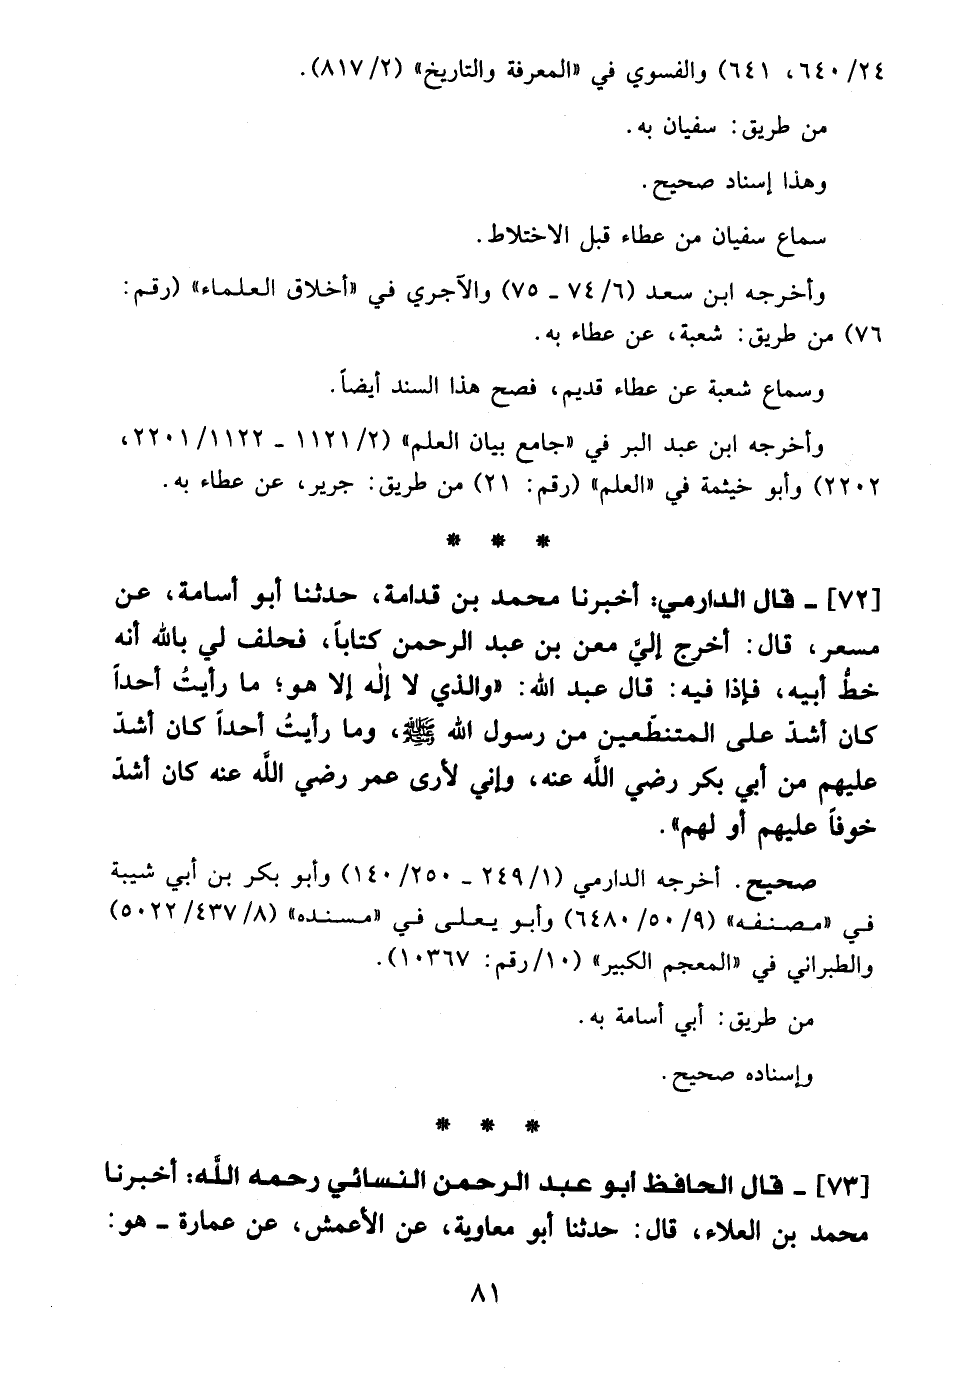 ٦٤٠/٢٤، ٦٤١) والفسوي في «المعرفة والتاريخ» (٨١٧/٢).
من طريق: سفيان به.
وهذا إسناد صحيح.
سماع سفيان من عطاء قبل الاختلاط.
وأخرجه ابن سعد (٧٤/٦ ـ ٧٥) والآجري في «أخلاق العلماء» (رقم:
٧٦) من طريق: شعبة، عن عطاء به.
وسماع شعبة عن عطاء قديم، فصح هذا السند أيضاً.
وأخرجه ابن عبد البر في «جامع بيان العلم» (١١٢١/٢ ـ ٢٢٠١/١١٢٢،
٢٢٠٢) وأبو خيثمة في «العلم» (رقم: ٢١) من طريق: جرير، عن عطاء به.
* * *
[٧٢] ـ قال الدارمي: أخبرنا محمد بن قدامة، حدثنا أبو أسامة، عن
مسعر، قال: أخرج إليَّ معن بن عبد الرحمن كتاباً، فحلف لي بالله أنه
خطُّ أبيه، فإذا فيه: قال عبد الله: «والذي لا إلٰه إلا هو؛ ما رأيتُ أحداً
كان أشدّ على المتنطّعين من رسول الله ﷺ، وما رأيتُ أحداً كان أشدّ
عليهم من أبي بكر رضي اللَّه عنه، وإني لأرى عمر رضي اللَّه عنه كان أشدّ
خوفاً عليهم أو لهم».
صحيح. أخرجه الدارمي (٢٤٩/١ ـ ١٤٠/٢٥٠) وأبو بكر بن أبي شيبة
في «مصنفه» (٦٤٨٠/٥٠/٩) وأبو يعلى في «مسنده» (٥٠٢٢/٤٣٧/٨)
والطبراني في «المعجم الكبير» (١٠/رقم: ١٠٣٦٧).
من طريق: أبي أسامة به.
وإسناده صحيح.
* * *
[٧٣] ـ قال الحافظ أبو عبد الرحمن النسائي رحمه اللَّه: أخبرنا
محمد بن العلاء، قال: حدثنا أبو معاوية، عن الأعمش، عن عمارة ـ هو:
٨١